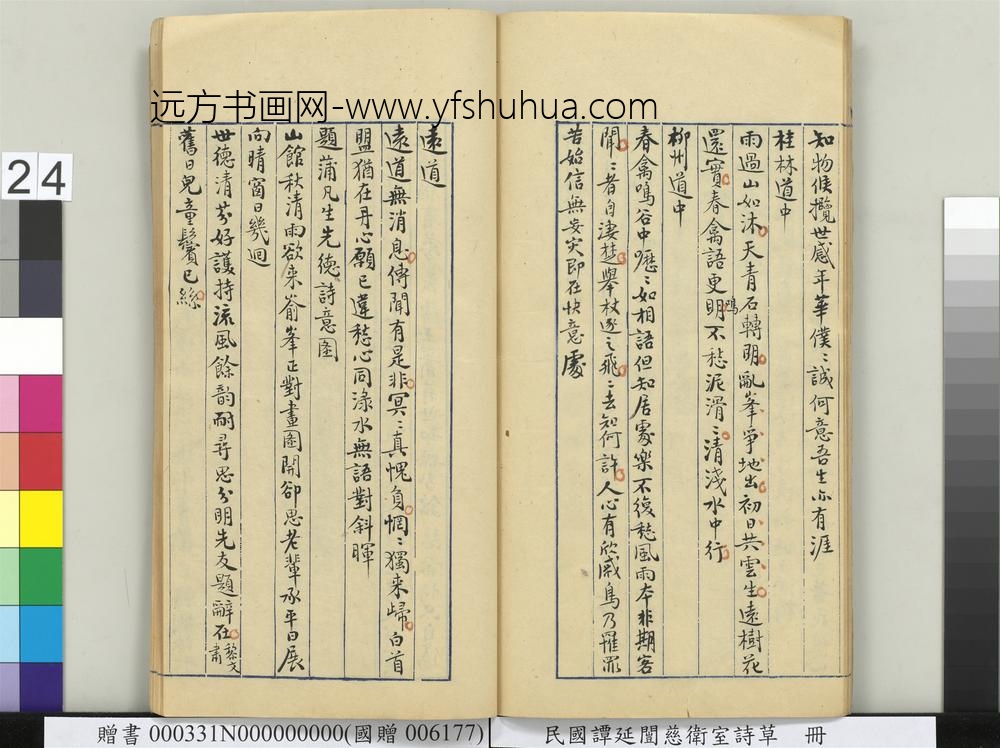 远方书画网-www.yfshuhua.com
24
知物候攬世感年華僕〻誠何意吾生亦有涯
桂林道中
雨過山如沐天青石轉明亂峯爭地出初日共雲生遠樹花
還實春禽語更明鳴不愁泥滑〻清淺水中行
柳州道中
春禽鳴谷中嚦〻如相語但知居處樂不復愁風雨本非期客
聞〻者自淒楚舉杖逐之飛〻去知何許人心有欣戚鳥乃罹罪
苦始信無妄灾即在快意處
遠道
遠道無消息傳聞有是非冥〻真愧負惘〻獨來歸白首
盟猶在丹心願已違愁心同淥水無語對斜暉
題蒲凡生先德詩意圖
山館秋清雨欲来俞峯正對畫圖開卻思老輩承平日展
向晴窗日幾迴
世德清芬好護持流風餘韵耐尋思分明先友題辭在
舊日兒童鬢已絲
贈書 000331N000000000(國贈 006177)
民國譚延闓慈衛室詩草 冊